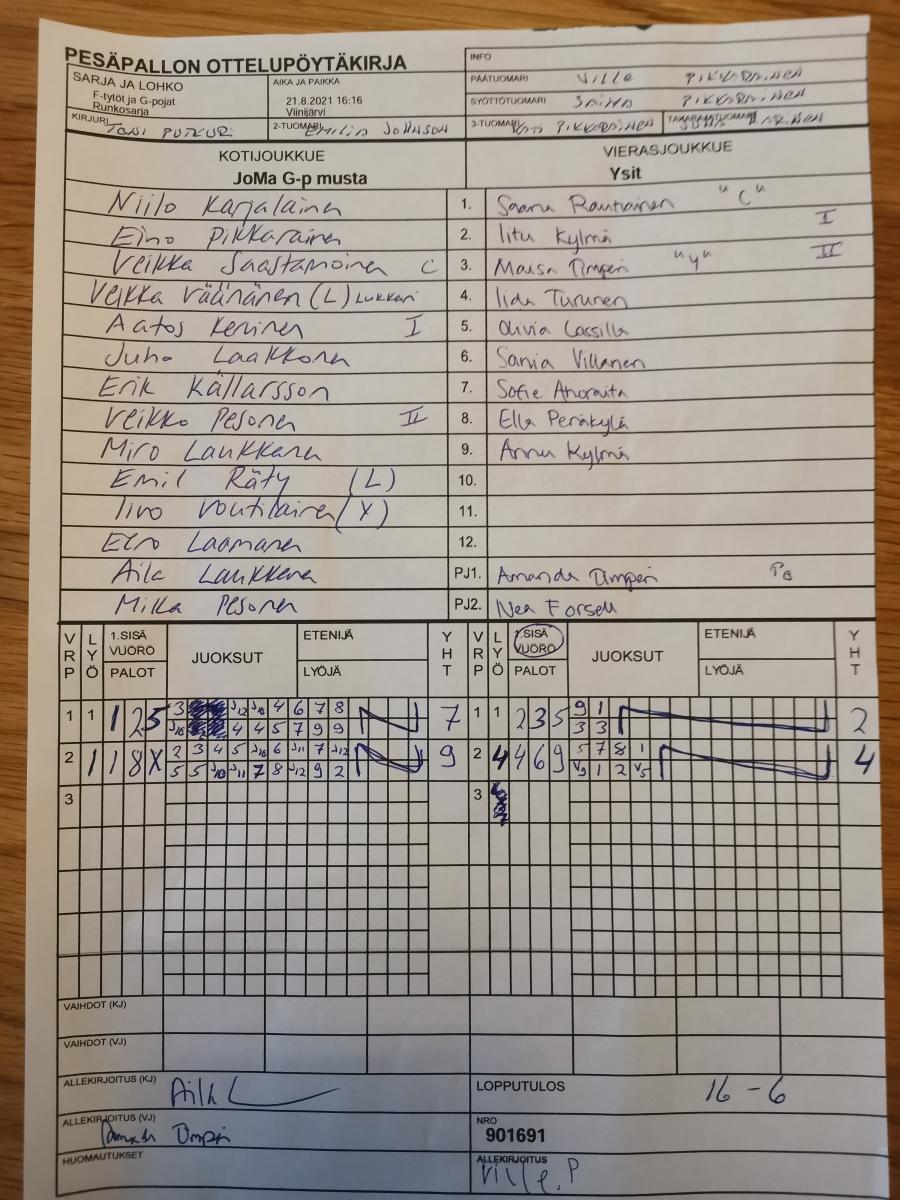 PESÄPALLON OTTELUPÖYTÄKIRJA
INFO
SARJA JA LOHKO
F-tytöt ja G-pojat
Runkosarja
AIKA JA PAIKKA
21.8.2021 16:16
Viinijärvi
PÄÄTUOMARI Ville Pikkarainen
SYÖTTÖTUOMARI Saina Pikkarainen
KIRJURI Toni Putkuri
2-TUOMARI Emilia Johnson
3-TUOMARI Pikkarainen
TAKARAJATUOMARI
KOTIJOUKKUE
JoMa G-p musta
VIERASJOUKKUE
Ysit
Niilo Karjalainen 1. Saana Rautiainen "C"
Eino Pikkarainen 2. Iitu Kylmä I
Veikka Saastamoinen C 3. Maisa Timperi "y" II
Veikka Väänänen (L) Lukkari 4. Iida Turunen
Aatos Kervinen I 5. Olivia Cassilla
Juho Laakkonen 6. Sania Villanen
Erik Källarsson 7. Sofie Ahoraita
Veikko Pesonen II 8. Ella Peräkylä
Miro Laukkanen 9. Annu Kylmä
Emil Räty (L) 10.
Iivo Voutilainen (X) 11.
Eero Laamanen 12.
Aila Laukkanen PJ1. Amanda Timperi Pe
Mika Pesonen PJ2. Nea Forsell
VRP LYÖ 1.SISÄ VUORO PALOT JUOKSUT ETENIJÄ LYÖJÄ YHT VRP LYÖ 1.SISÄ VUORO PALOT JUOKSUT ETENIJÄ LYÖJÄ YHT
1 1 1 2 5 3 J12 J10 4 6 7 8 7 1 1 2 3 5 9 1 2
J10 4 4 5 7 9 9 3 3
2 1 1 8 X 2 3 4 5 J10 6 J11 7 J12 9 2 4 4 6 9 5 7 8 1 4
5 5 J10 J11 7 8 J12 9 2 V9 1 2 V5
3 3
VAIHDOT (KJ)
VAIHDOT (VJ)
ALLEKIRJOITUS (KJ) Aila L
LOPPUTULOS 16 - 6
ALLEKIRJOITUS (VJ) Amanda Timperi
NRO
901691
HUOMAUTUKSET
ALLEKIRJOITUS
Ville.P